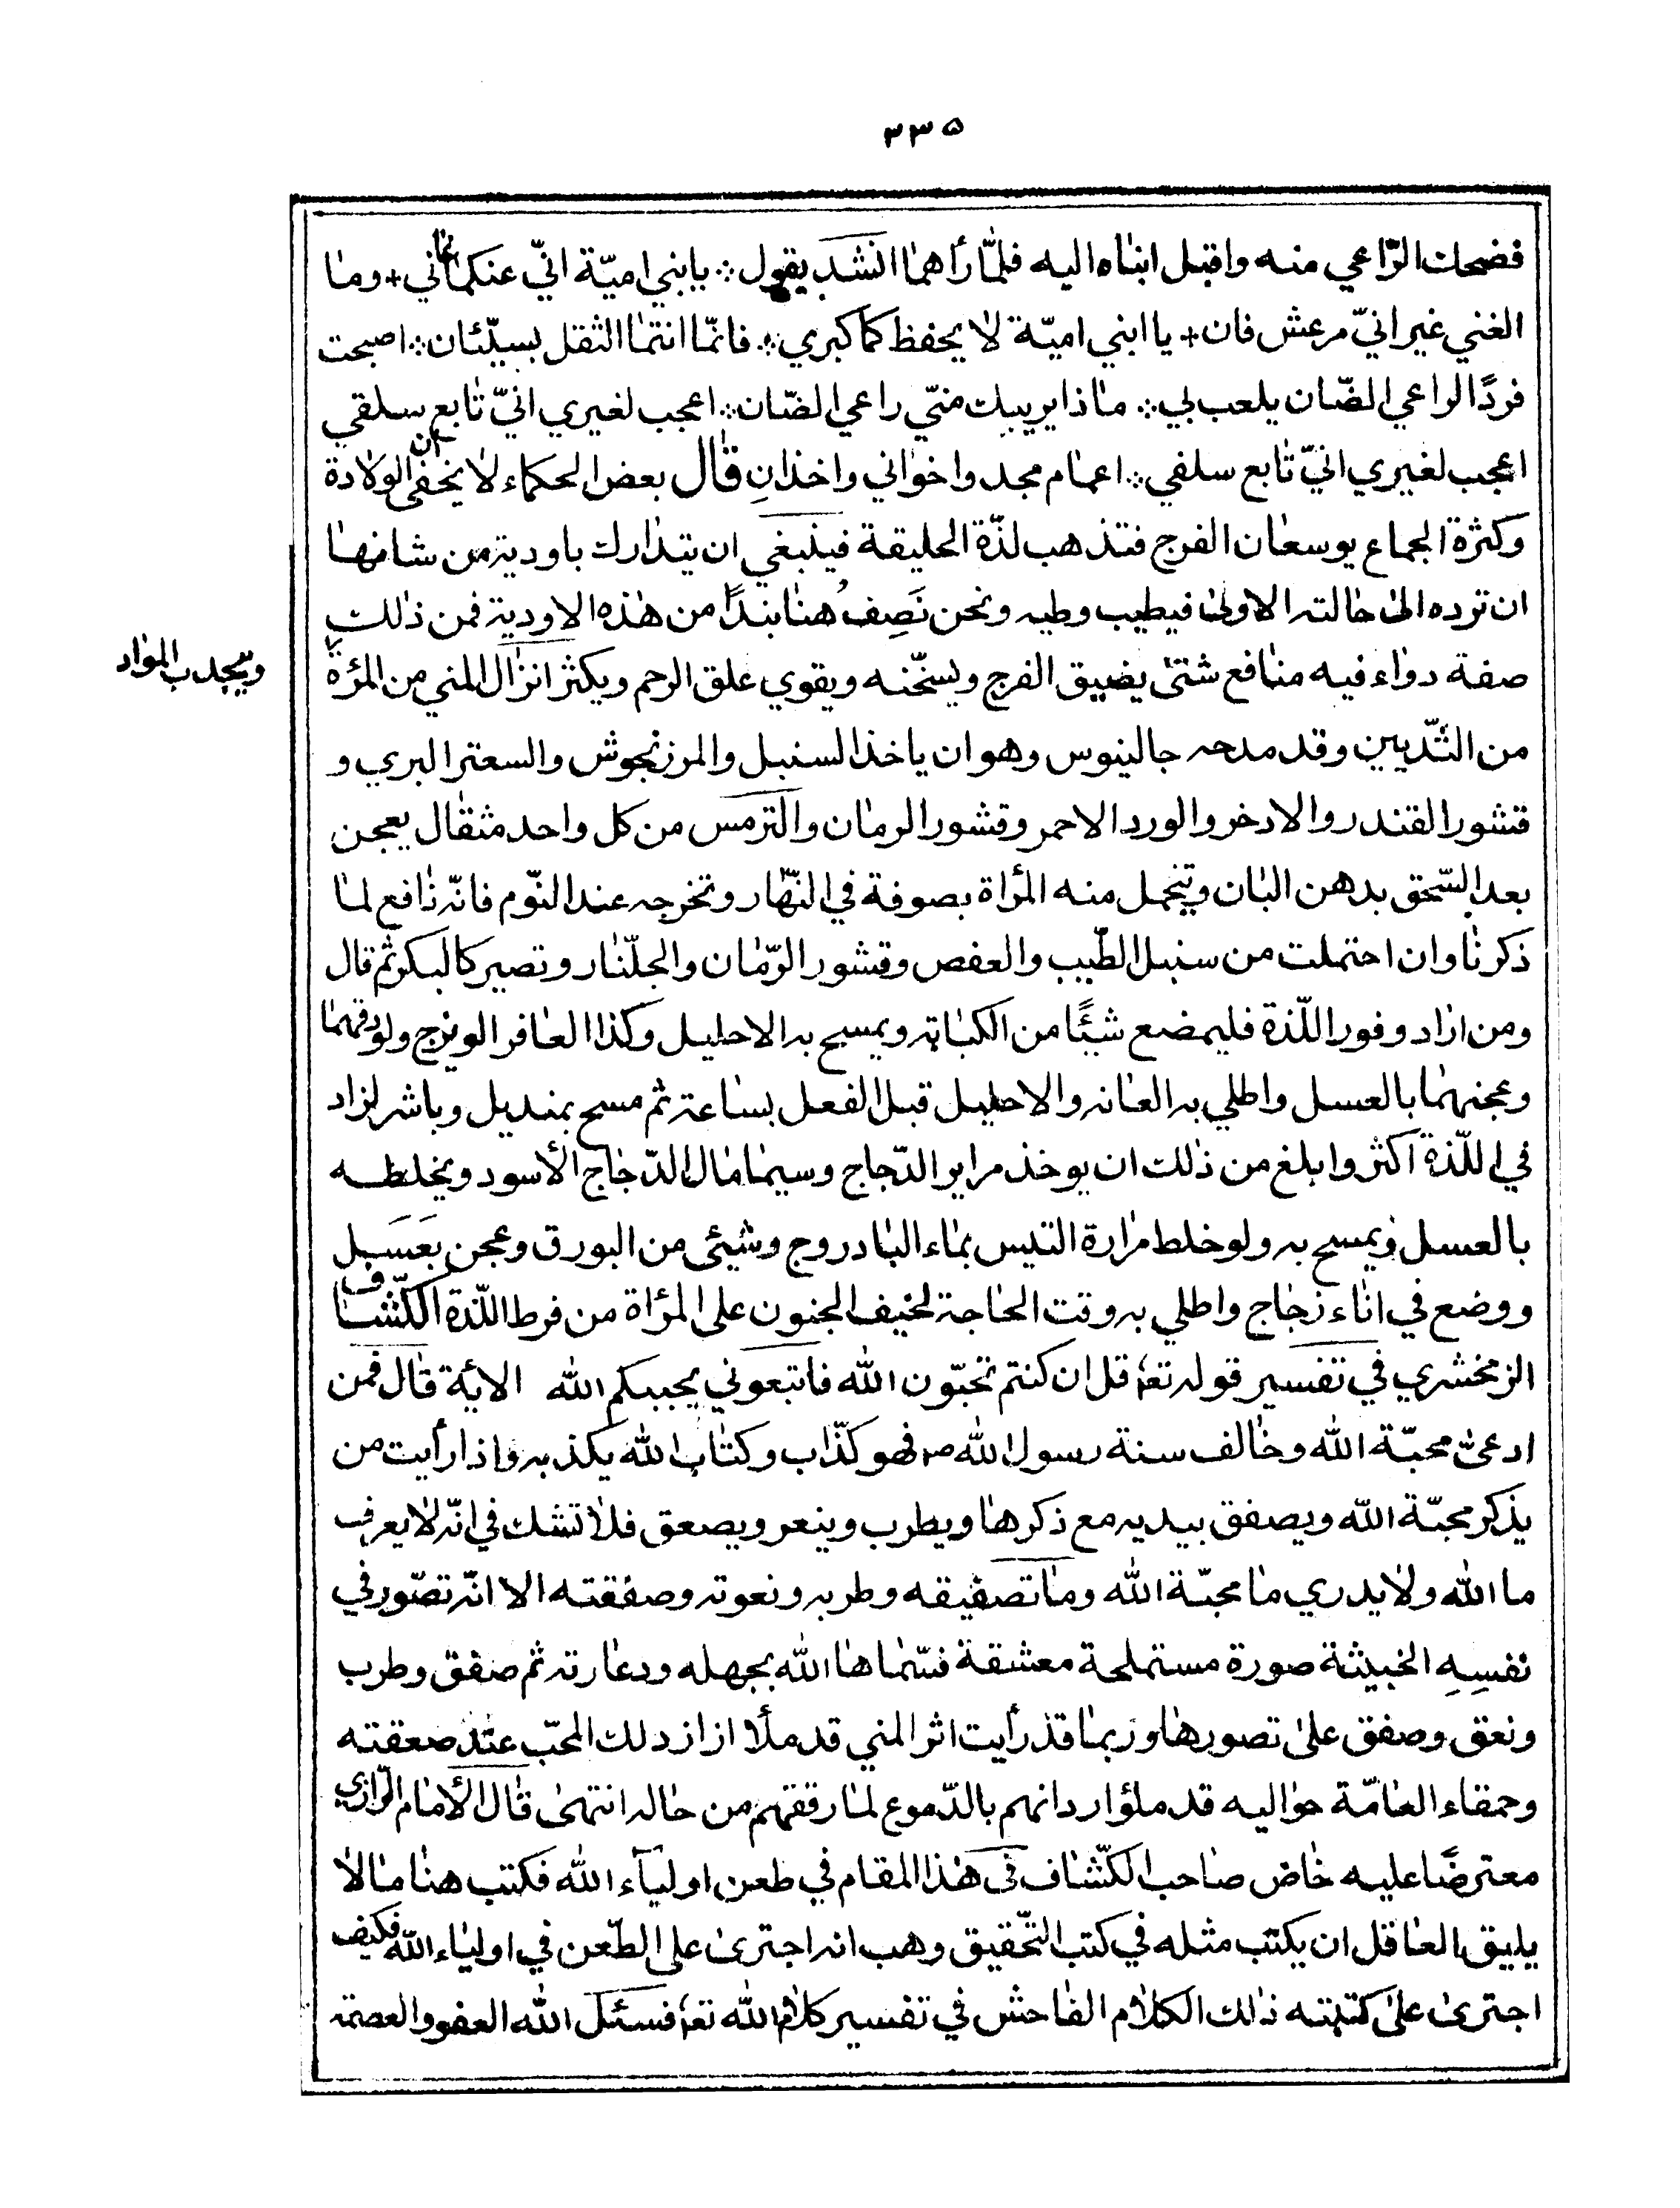 ٣٣٥
فضحك الرّاعي منه واقبل ابناه اليه فلمّا رأهما انشد يقول ∴ يابني اميّة انّي عنكما غاني + وما
الغني غير انّي مرعش فان + يا ابني اميّة لا يحفظ كما كبري ∴ فانّما انتما الثقل بسيّئان ∴ اصبحت
فردًا لراعي الضّان يلعب بي ∴ ماذا يريبك منّي راعي الضّان ∴ اعجب لغيري انّي تابع سلفي
اعجب لغيري انّي تابع سلفي ∴ اعمام مجد واخواني واخذانِ قال بعض الحكماء لا يخفى ان الولادة
وكثرة الجماع يوسعان الفرج فتذهب لذّة الحليقة فينبغي ان يتدارك باودية من شانها
ان ترده الى حالته الاولى فيطيب وطيه ونحن نَصِفُ هنا نبذًا من هذه الاودية فمن ذلك
صفة دواء فيه منافع شتى يضيق الفرج ويسخّنه ويقوي علق الرحم ويكثر انزال المني من المرأة
ويجذب المواد
من الثّديين وقد مدحه جالينوس وهو ان ياخذ السنبل والمرزنجوش والسعتر البري و
قشور القندر والادخر والورد الاحمر وقشور الرمان والترمس من كل واحد مثقال يعجن
بعد السّحق بدهن البان وتتحمل منه المرأة بصوفة في النّهار وتخرجه عند النّوم فانّه نافع لما
ذكرنا وان احتملت من سنبل الطّيب والعفص وقشور الرّمان والجلّنار وتصير كالبكر ثم قال
ومن اراد وفور اللّذة فليمضع شيئًا من الكبابة ويمسح به الاحليل وكذا العاقر الونرج ولو دقهما
وعجنهما بالعسل واطلي به العانه والاحليل قبل الفعل بساعة ثم مسح بمنديل وباشر لزاد
في اللّذة اكثر وابلغ من ذلك ان يوخذ مراير الدّجاج وسيما مال الدّجاج الأسود ويخلطه
بالعسل ويمسح به ولو خلط مرارة التيس بماء البادروج وشيئ من البورق وعجن بعَسَل
ووضع في اناء زجاج واطلي به وقت الحاجة لخيف الجنون على المرأة من فرط اللّذة الكشّاف
الزمخشري في تفسير قوله تعا قل ان كنتم تحبّون الله فاتبعوني يحببكم الله الاية قال فمن
ادعى محبّة الله وخالف سنة رسول الله ص فهو كذّاب وكتاب الله يكذبه واذا رأيت من
يذكر محبّة الله ويصفق بيديه مع ذكرها ويطرب وينعر ويصعق فلا تشك في انّه لا يعرف
ما الله ولا يدري ما محبّة الله وما تصفيقه وطربه ونعوته وصفقته الا انّه تصّور في
نفسِهِ الخبيثة صورة مستملحة معشقة فسّماها الله بجهله ودعارته ثم صفق وطرب
ونعق وصفق على تصورها وربما قد رأيت اثر المني قد ملأ ازار ذلك المحبّ عند صعقته
وحمقاء العامّة حواليه قد ملؤا ردانهم بالدّموع لما رققهم من حاله انتهى قال الأمام الرّازي
معترضًا عليه خاض صاحب الكشّاف في هذا المقام في طعن اولياء الله فكتب هنا مالا
يليق العاقل ان يكتب مثله في كتب التّحقيق وهب انه اجترى على الطّعن في اولياء الله فكيف
اجترى على كتبته ذلك الكلام الفاحش في تفسير كلام الله تعا فسئل الله العفو والعصمة